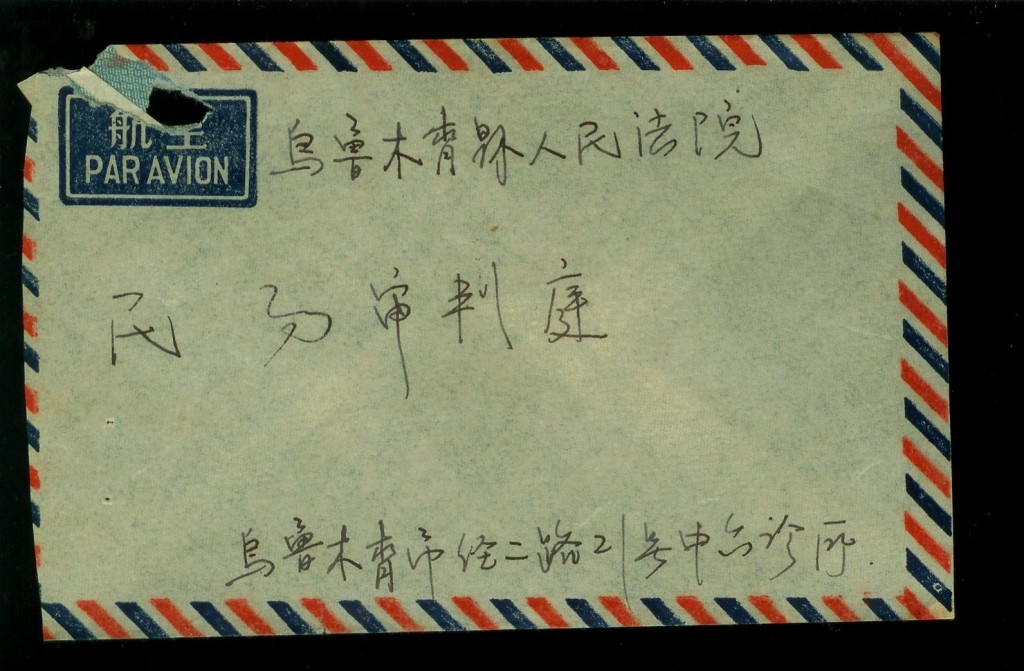 航空
PAR AVION
乌鲁木齐县人民法院
民 审判庭
乌鲁木齐市经二路21号中诊所